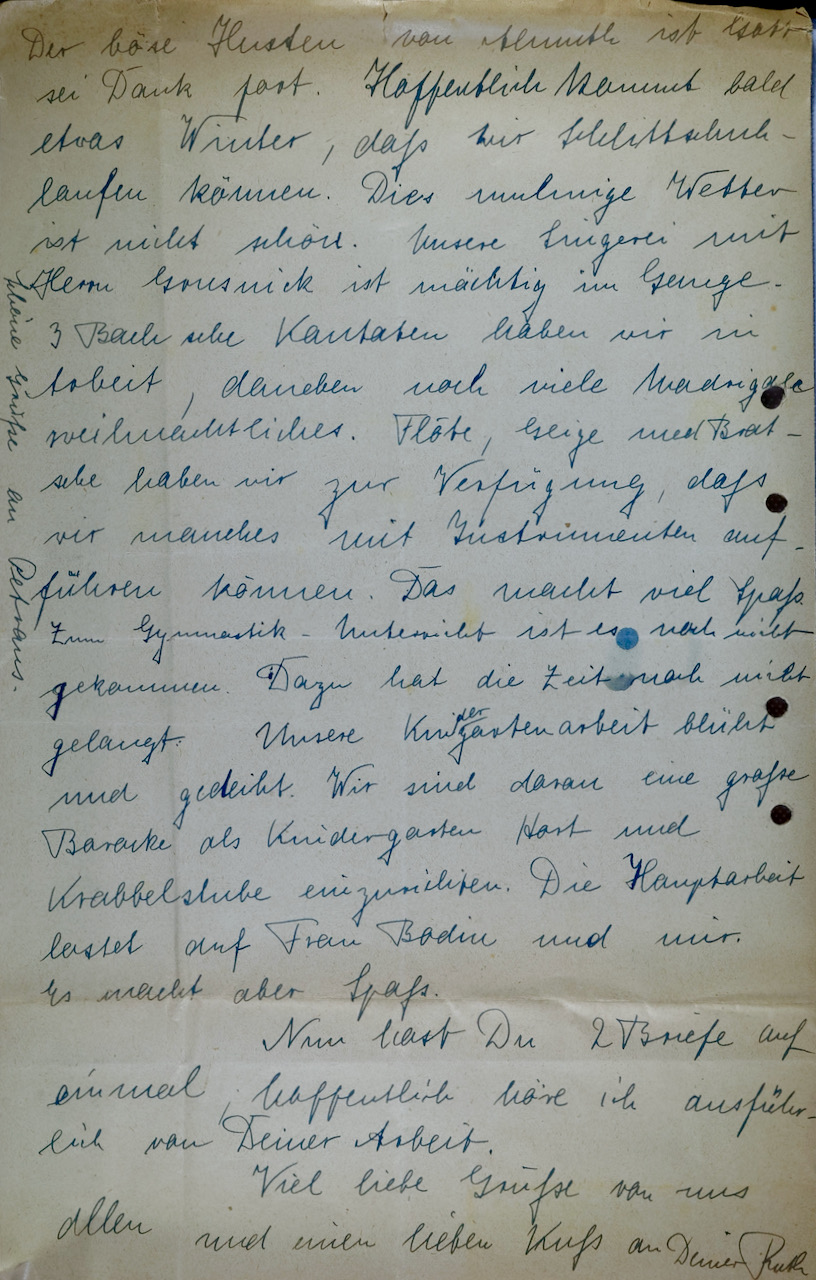 Der böse Husten von Almuth ist Gott
sei Dank fort. Hoffentlich kommt bald
etwas Winter, daß wir Schlittschuh-
laufen können. Dies mulmige Wetter
ist nicht schön. Unsere Singerei mit
Herrn Grusnick ist mächtig im Gange.
3 Bachsche Kantaten haben wir in
Arbeit, daneben noch viele Madrigale
weihnachtliches. Flöte, Geige und Brat-
sche haben wir zur Verfügung, daß
wir manches mit Instrumenten auf-
führen können. Das macht viel Spaß.
Zum Gymnastik-Unterricht ist es noch nicht
gekommen. Dazu hat die Zeit noch nicht
gelangt. Unsere Kindergartenarbeit blüht
und gedeiht. Wir sind daran eine große
Baracke als Kindergarten Hort und
Krabbelstube einzurichten. Die Hauptarbeit
lastet auf Frau Bodin und mir.
Es macht aber Spaß.
Nun hast Du 2 Briefe auf
einmal, hoffentlich höre ich ausführ-
lich von Deiner Arbeit.
Viel liebe Grüße von uns
allen und einen lieben Kuß an Deiner Ruth
Schöne Grüße an Petrans.